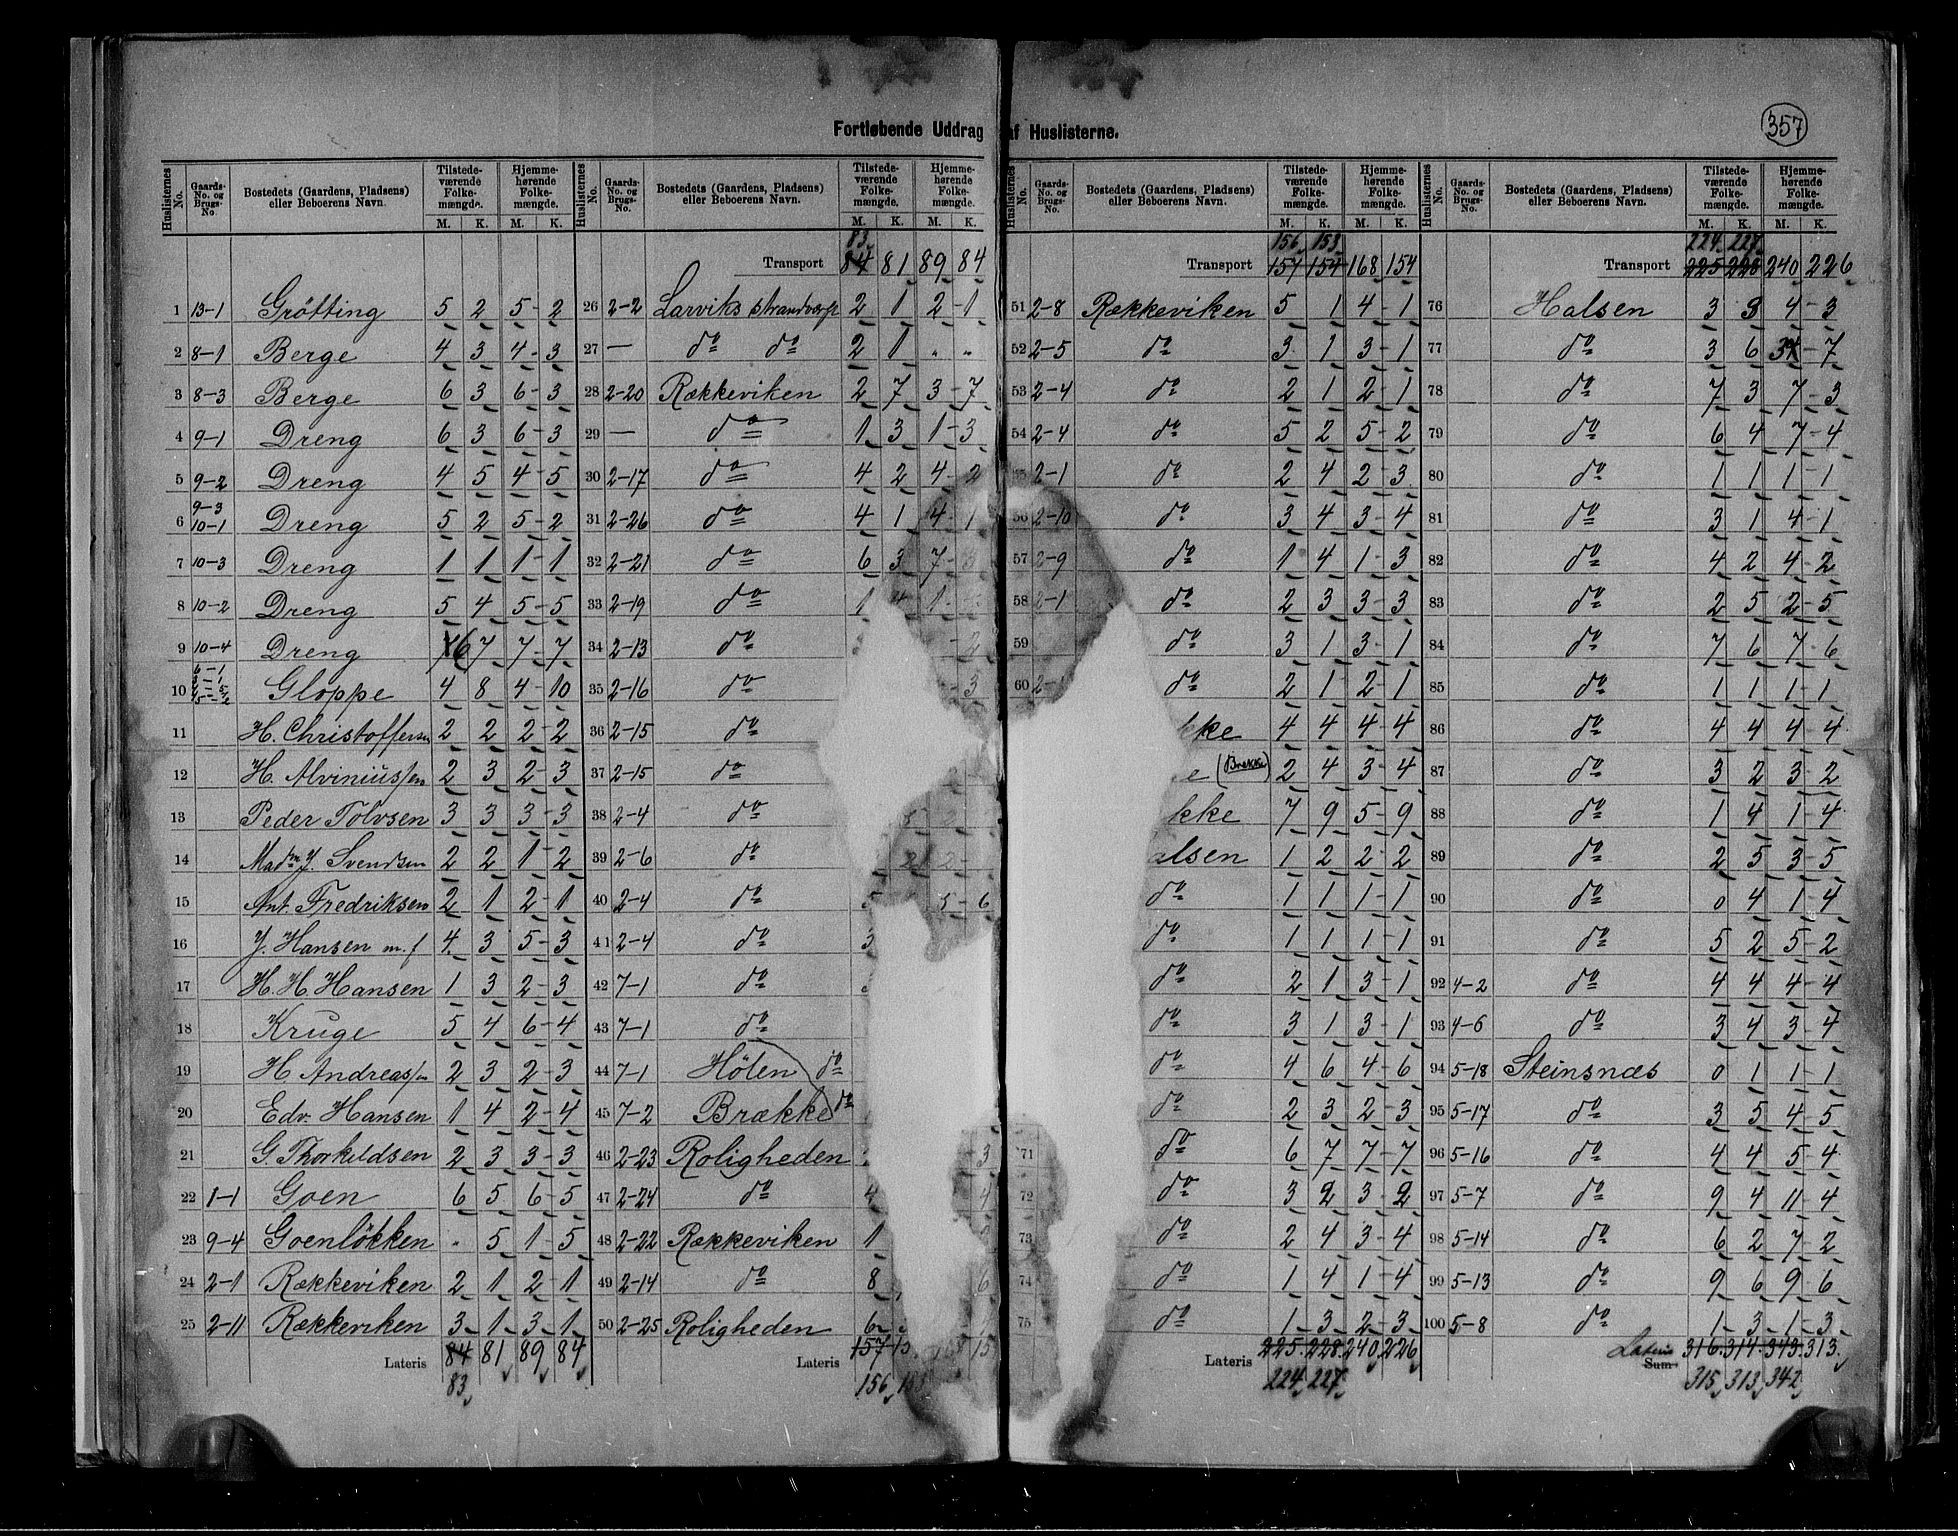 Fortløbende Uddrag af Huslisterne.
357
Huslisternes No. | Gaards-No. og Brugs-No. | Bostedets (Gaardens, Pladsens) eller Beboerens Navn. | Tilstedeværende Folkemængde. M. K. | Hjemmehørende Folkemængde. M. K.
1 13-1 Grötting 5 2 5-2
2 8-1 Berge 4 3 4-3
3 8-3 Berge 6 3 6-3
4 9-1 Dreng 6 3 6-3
5 9-2 Dreng 4 5 4-5
6 9-3 10-1 Dreng 5 2 5-2
7 10-3 Dreng 1 1 1-1
8 10-2 Dreng 5 4 5-5
9 10-4 Dreng 6 7 7-7
10 Gloppe 4 8 4-10
11 H. Christoffersen 2 2 2-2
12 H. Alviniussen 2 3 2-3
13 Peder Tolvsen 3 3 3-3
14 Madm J. Svendsen 2 2 1-2
15 Ant. Fredriksen 2 1 2-1
16 J. Hansen m. f 4 3 5-3
17 H. H. Hansen 1 3 2-3
18 Kruge 5 4 6-4
19 H Andreassen 2 3 2-3
20 Edv. Hansen 1 4 2-4
21 G. Thorkildsen 2 3 3-3
22 1-1 Goen 6 5 6-5
23 9-4 Goenløkken - 5 1-5
24 2-1 Rækkeviken 2 1 2-1
25 2-11 Rækkeviken 3 1 3-1
Lateris 84 81 89 84
83
Transport 84 81 89 84
83
26 2-2 Larviks strandverp 2 1 2-1
27 — do do 2 1 " "
28 2-20 Rækkeviken 2 7 3-7
29 — do 1 3 1-3
30 2-17 do 4 2 4-2
31 2-26 do 4 1 4-1
32 2-21 do 6 3 7-3
33 2-19 do 1 4 1-
34 2-13 do 2
35 2-16 do 3
36 2-15 do
37 2-15 do
38 2-4 do
39 2-6 do 2 2-
40 2-4 do 5-6
41 2-4 do 3
42 7-1 do
43 7-1 do
44 7-1 Hölen do
45 7-2 Brække do
46 2-23 Roligheden 3
47 2-24 do 4 4
48 2-22 Rækkeviken 1
49 2-14 do 8 6
50 2-25 Roligheden 6
Lateris 157
156
Transport 157 154 168 154
156 153
51 2-8 Rækkeviken 5 1 4-1
52 2-5 do 3 1 3-1
53 2-4 do 2 1 2-1
54 2-4 do 5 2 5-2
2-1 do 2 4 2-3
56 2-10 do 3 4 3-4
57 2-9 do 1 4 1-3
58 2-1 do 2 3 3-3
59 do 3 1 3-1
60 2- do 2 1 2-1
kke 4 4 4-4
e (Brekke) 2 4 3-4
kke 7 9 5-9
alsen 1 2 2-2
do 1 1 1-1
do 1 1 1-1
do 2 1 3-1
do 3 1 3-1
do 4 6 4-6
do 2 3 2-3
71 do 6 7 7-7
72 do 3 2 3-2
73 do 2 4 3-4
74 do 1 4 1-4
75 do 1 3 2-3
Lateris 225 228 240 226
224 227
Transport 225 228 240 226
224 227
76 Halsen 3 3 4-3
77 do 3 6 3-7
78 do 7 3 7-3
79 do 6 4 7-4
80 do 1 1 1-1
81 do 3 1 4-1
82 do 4 2 4-2
83 do 2 5 2-5
84 do 7 6 7-6
85 do 1 1 1-1
86 do 4 4 4-4
87 do 3 2 3-2
88 do 1 4 1-4
89 do 2 5 3-5
90 do 0 4 1-4
91 do 5 2 5-2
92 4-2 do 4 4 4-4
93 4-6 do 3 4 3-4
94 5-18 Steinsnæs 0 1 1-1
95 5-17 do 3 5 4-5
96 5-16 do 4 4 5-4
97 5-7 do 9 4 11-4
98 5-14 do 6 2 7-2
99 5-13 do 9 6 9-6
100 5-8 do 1 3 1-3
Lateris Sum 316 314 343 313
315 313 342